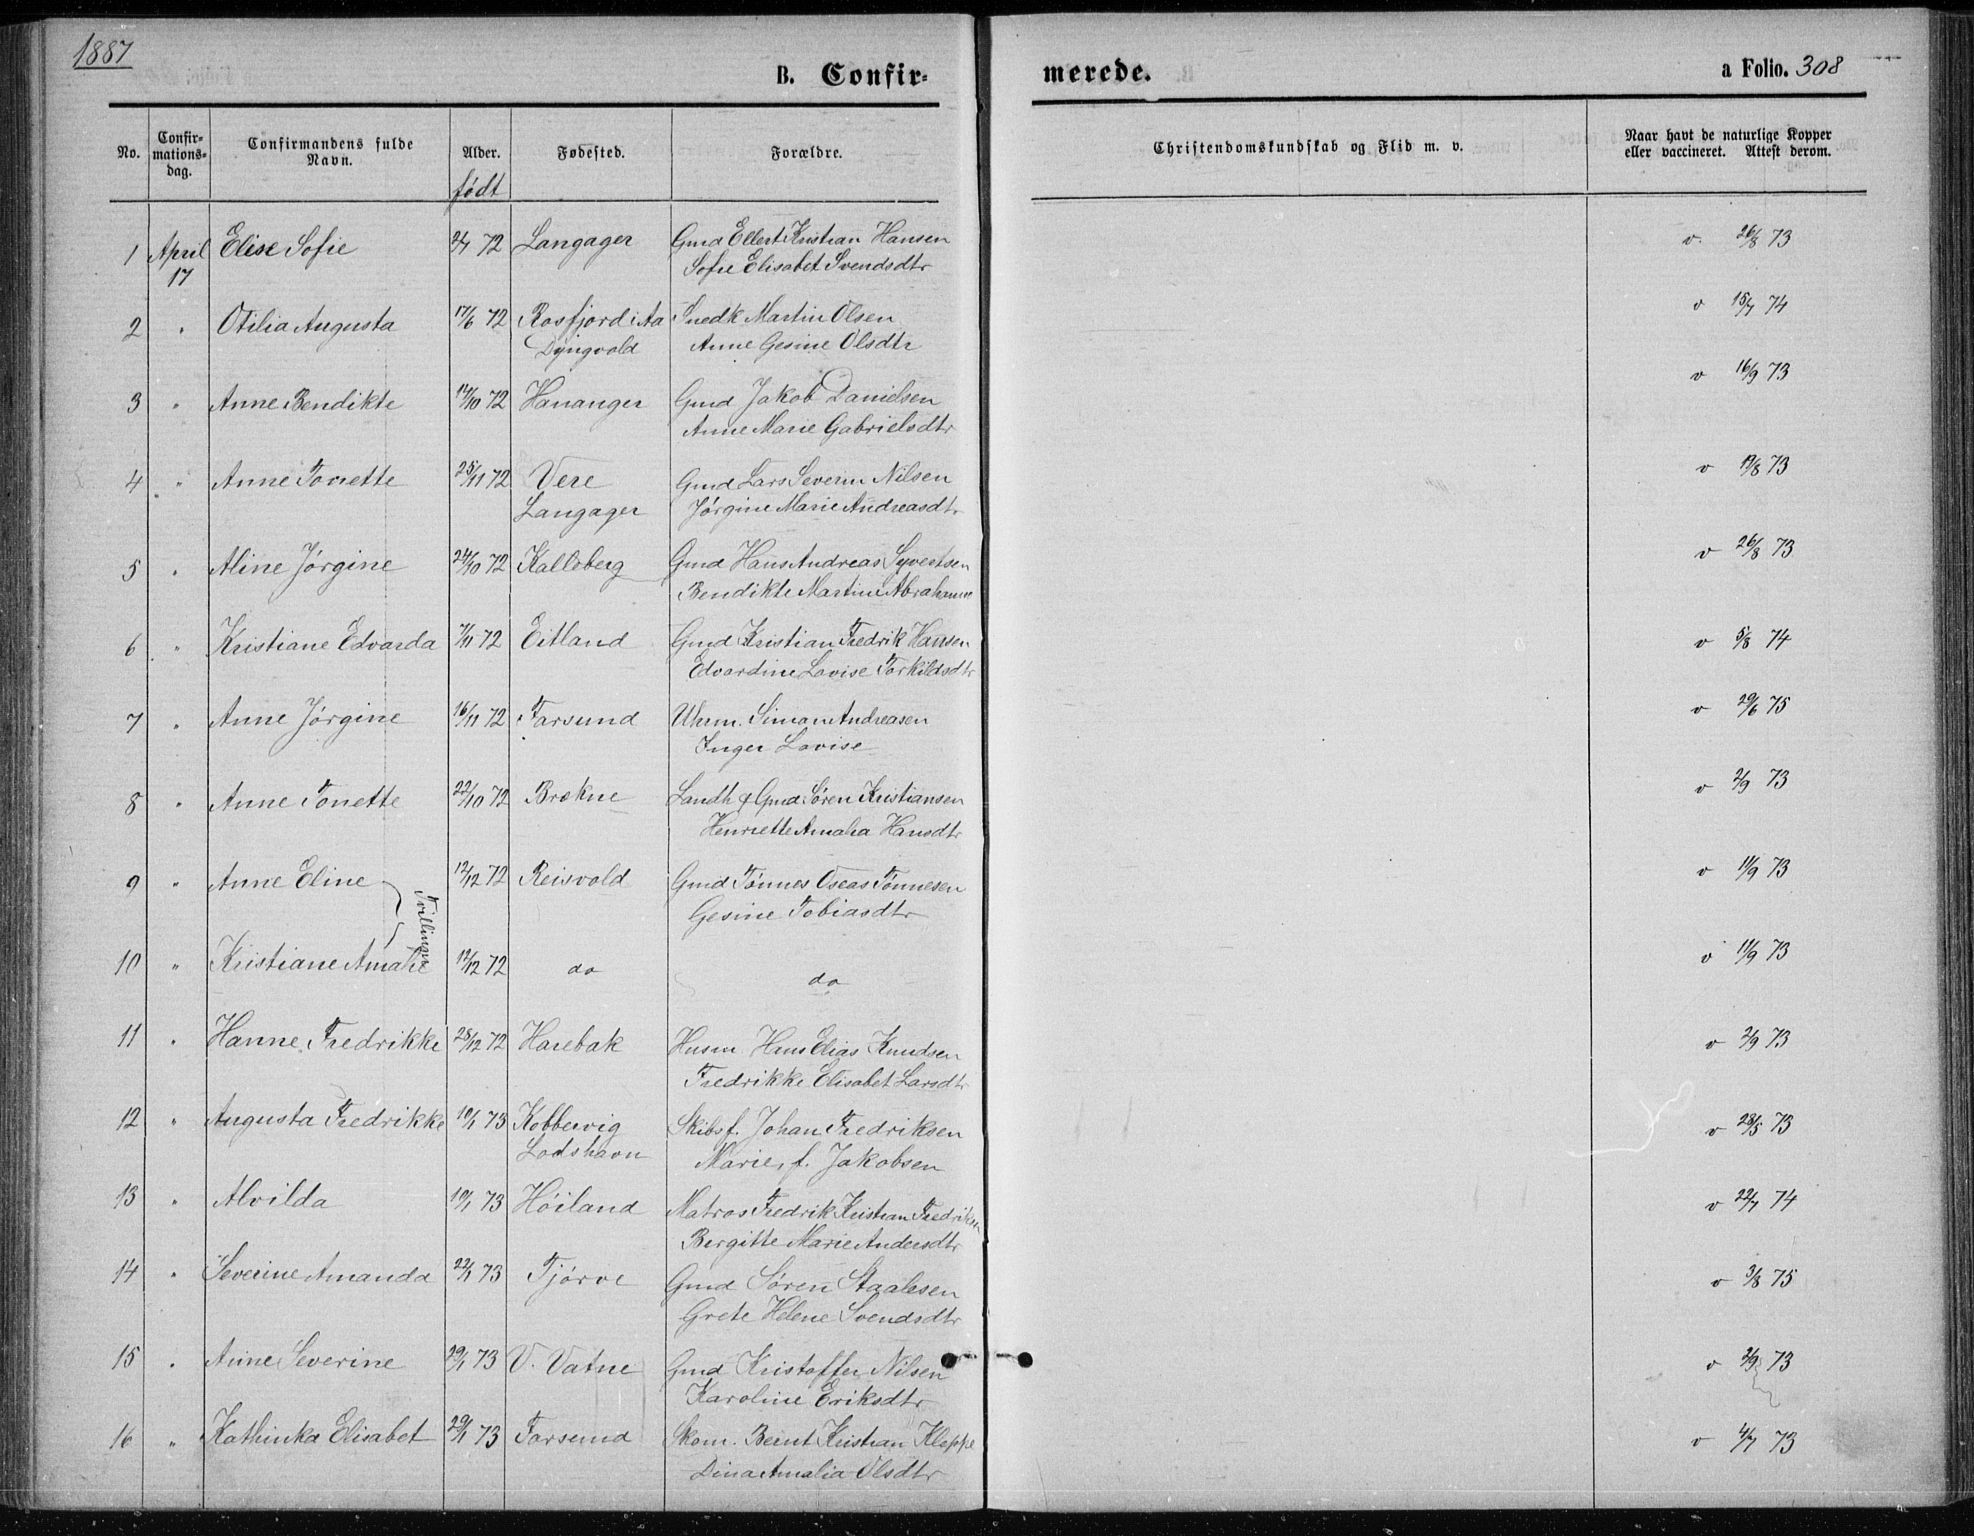 1887
B. Confir-
merede.
a Folio. 308
No.
Confir-
mations-
dag.
Confirmandens fulde
Navn.
Alder.
født
Fødested.
Forældre.
Christendomskundskab og Flid m. v.
Naar havt de naturlige Kopper
eller vaccineret. Attest derom.
1 April Elise Sofie 72 Langager Gmd Ellert Kristian Hansen v. 26/8 73
17 Sofie Elisabet Svendsdtr
2 " Otilia Augusta 17/6 72 Rosfjord i Aa Snedk Martin Olsen v 15/7 74
Dyngvold Anne Gesine Olsdtr
3 " Anne Bendikte 14/10 72 Hananger Gmd Jakob Danielsen v 16/9 73
Anne Marie Gabrielsdtr
4 " Anne Torrette 25/11 72 Vere Gmd Lars Severin Nilsen v 19/8 73
Langager Jørgine Marie Andreasdtr
5 " Aline Jørgine 24/10 72 Kalleberg Gmd Hans Andreas Syvertsen v 26/8 73
Bendikte Martine
6 " Kristiane Edvarda 7/11 72 Eitland Gmd Kristian Fredrik Hansen v 5/8 74
Edvardine Lovise Torkildsdtr
7 " Anne Jørgine 16/11 72 Farsund Uhrm. Simon Andreasen v 29/6 75
Inger Lovise
8 " Anne Tonette 22/10 72 Brekne Landh & Gmd Søren Kristiansen v 2/9 73
Henriette Amalia Hansdtr
9 " Anne Eline 12/12 72 Reisvold Gmd Tønnes Oseas Tønnesen v 11/9 73
Tvillinger
Gesine Tobiasdtr
10 " Kristiane Amalie 12/12 72 do do v 11/9 73
11 " Hanne Fredrikke 28/12 72 Harebak Husm. Hans Elias Knudsen v 2/9 73
Fredrikke Elisabet Larsdtr
12 " Augusta Fredrikke 10/1 73 Kobbervig Skibsf. Johan Fredriksen v 28/5 73
Lodshavn Marie, f. Jakobsen
13 " Alvilda 19/1 73 Høiland Matros Fredrik Kristian Fredriksen v 22/7 74
Birgitte Marie Andersdtr
14 " Severine Amanda 22/1 73 Tjørve Gmd Søren Staalesen v 3/8 75
Grete Helene Svendsdtr
15 " Anne Severine 29/1 73 V. Vatne Gmd Kristoffer Nilsen v 2/9 73
Karoline Eriksdtr
16 " Kathinka Elisabet 29/1 73 Farsund Skom. Bernt Kristian Kleppe v 4/7 73
Dina Amalia Olsdtr